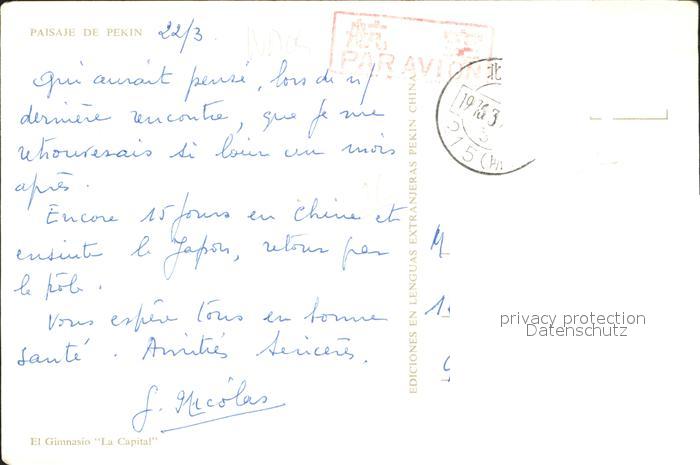 PAISAJE DE PEKIN
22/3
PAR AVION
Qui aurait pensé, lors de n/
dernière rencontre, que je me
retrouverais si loin un mois
après.
Encore 15 jours en Chine et
ensuite le Japon, retour par
le pôle.
Vous espère tous en bonne
santé. Amitiés sincères.
J. Nicolas
El Gimnasio "La Capital"
EDICIONES EN LENGUAS EXTRANJERAS PEKIN CHINA
北
215
M
privacy protection
Datenschutz